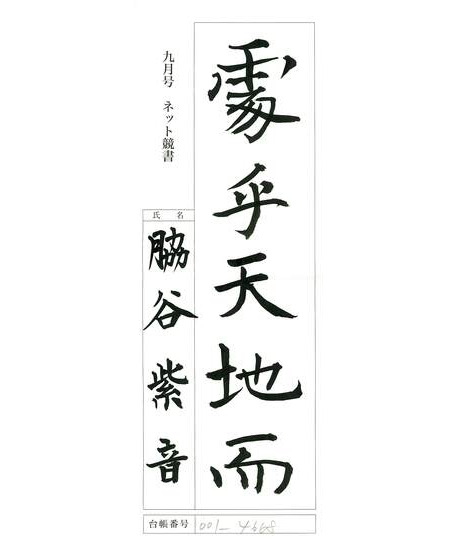 處乎天地而
九月号 ネット競書
氏名
脇谷紫音
台帳番号 001-4668